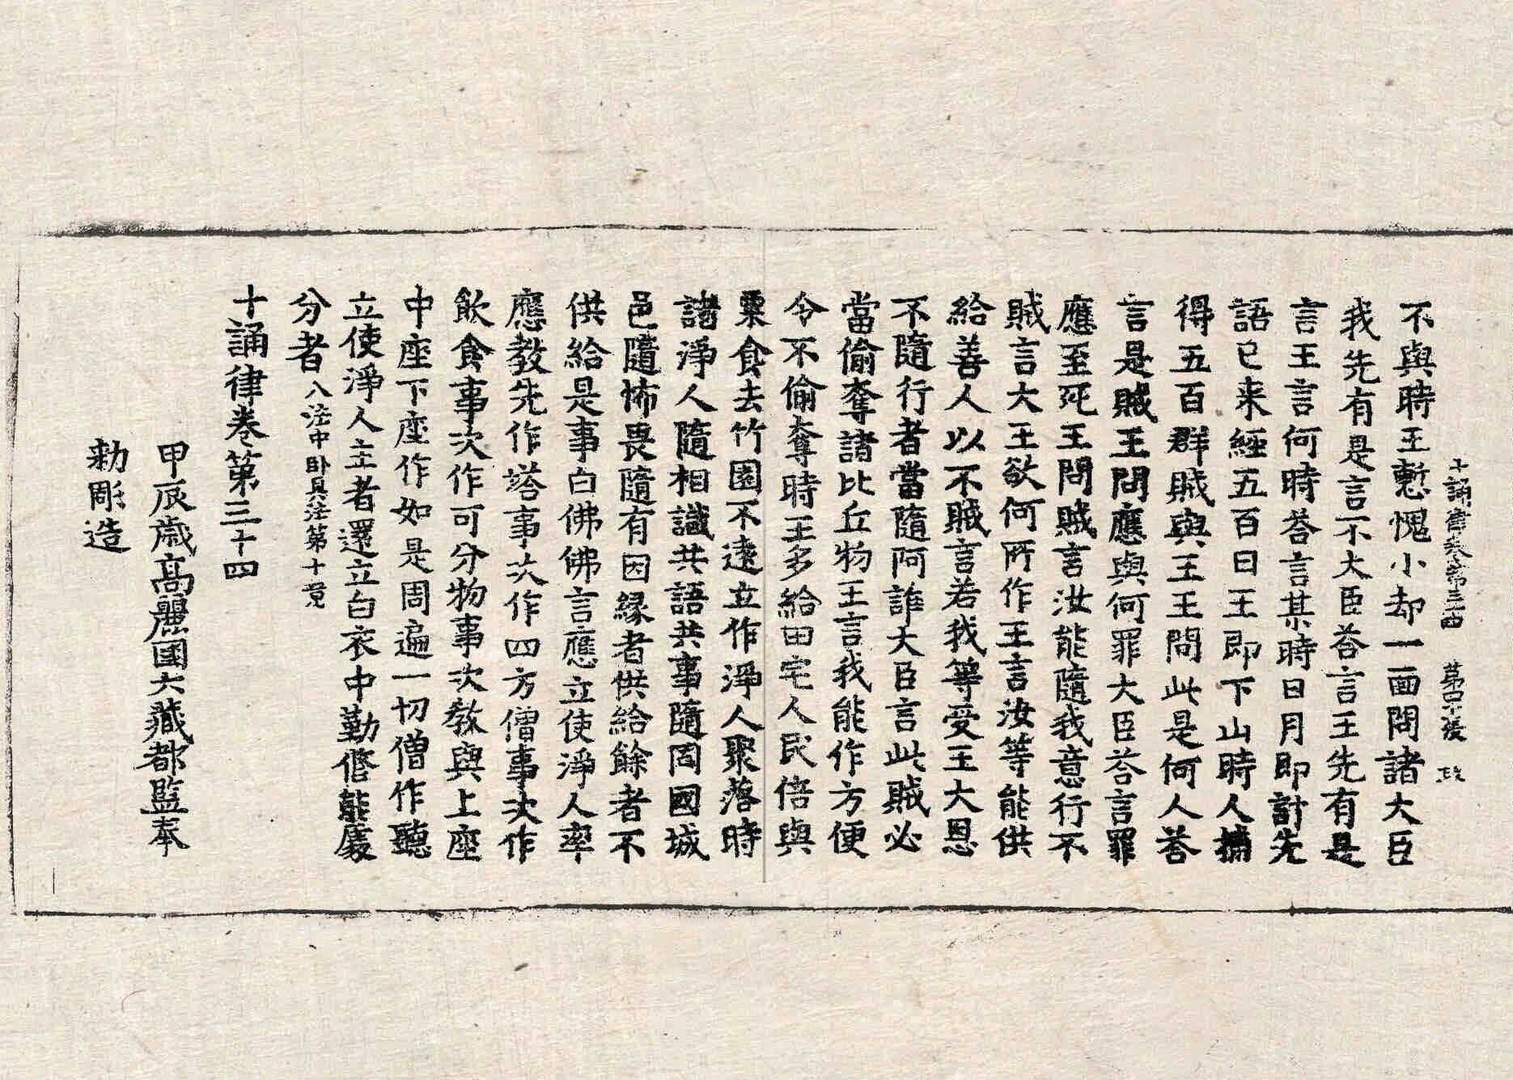 十誦律卷第三十四 第四十張 政
不與時王慙愧小却一面問諸大臣
我先有是言不大臣荅言王先有是
言王言何時荅言某時日月即計先
語已来經五百日王即下山時人捕
得五百群賊與王王問此是何人荅
言是賊王問應與何罪大臣荅言罪
應至死王問賊言汝能隨我意行不
賊言大王欲何所作王言汝等能供
給善人以不賊言若我等受王大恩
不隨行者當隨阿誰大臣言此賊必
當偷奪諸比丘物王言我能作方便
令不偷奪時王多給田宅人民倍與
稟食去竹園不遠立作淨人聚落時
諸淨人隨相識共語共事隨同國城
邑隨怖畏隨有因縁者供給餘者不
供給是事白佛佛言應立使淨人率
應教先作塔事次作四方僧事次作
飲食事次作可分物事次教與上座
中座下座作如是周遍一切僧作聽
立使淨人主主者還立白衣中勤修能處
分者八法中卧具法第十竟
十誦律卷第三十四
甲辰歳高麗國大藏都監奉
勅彫造